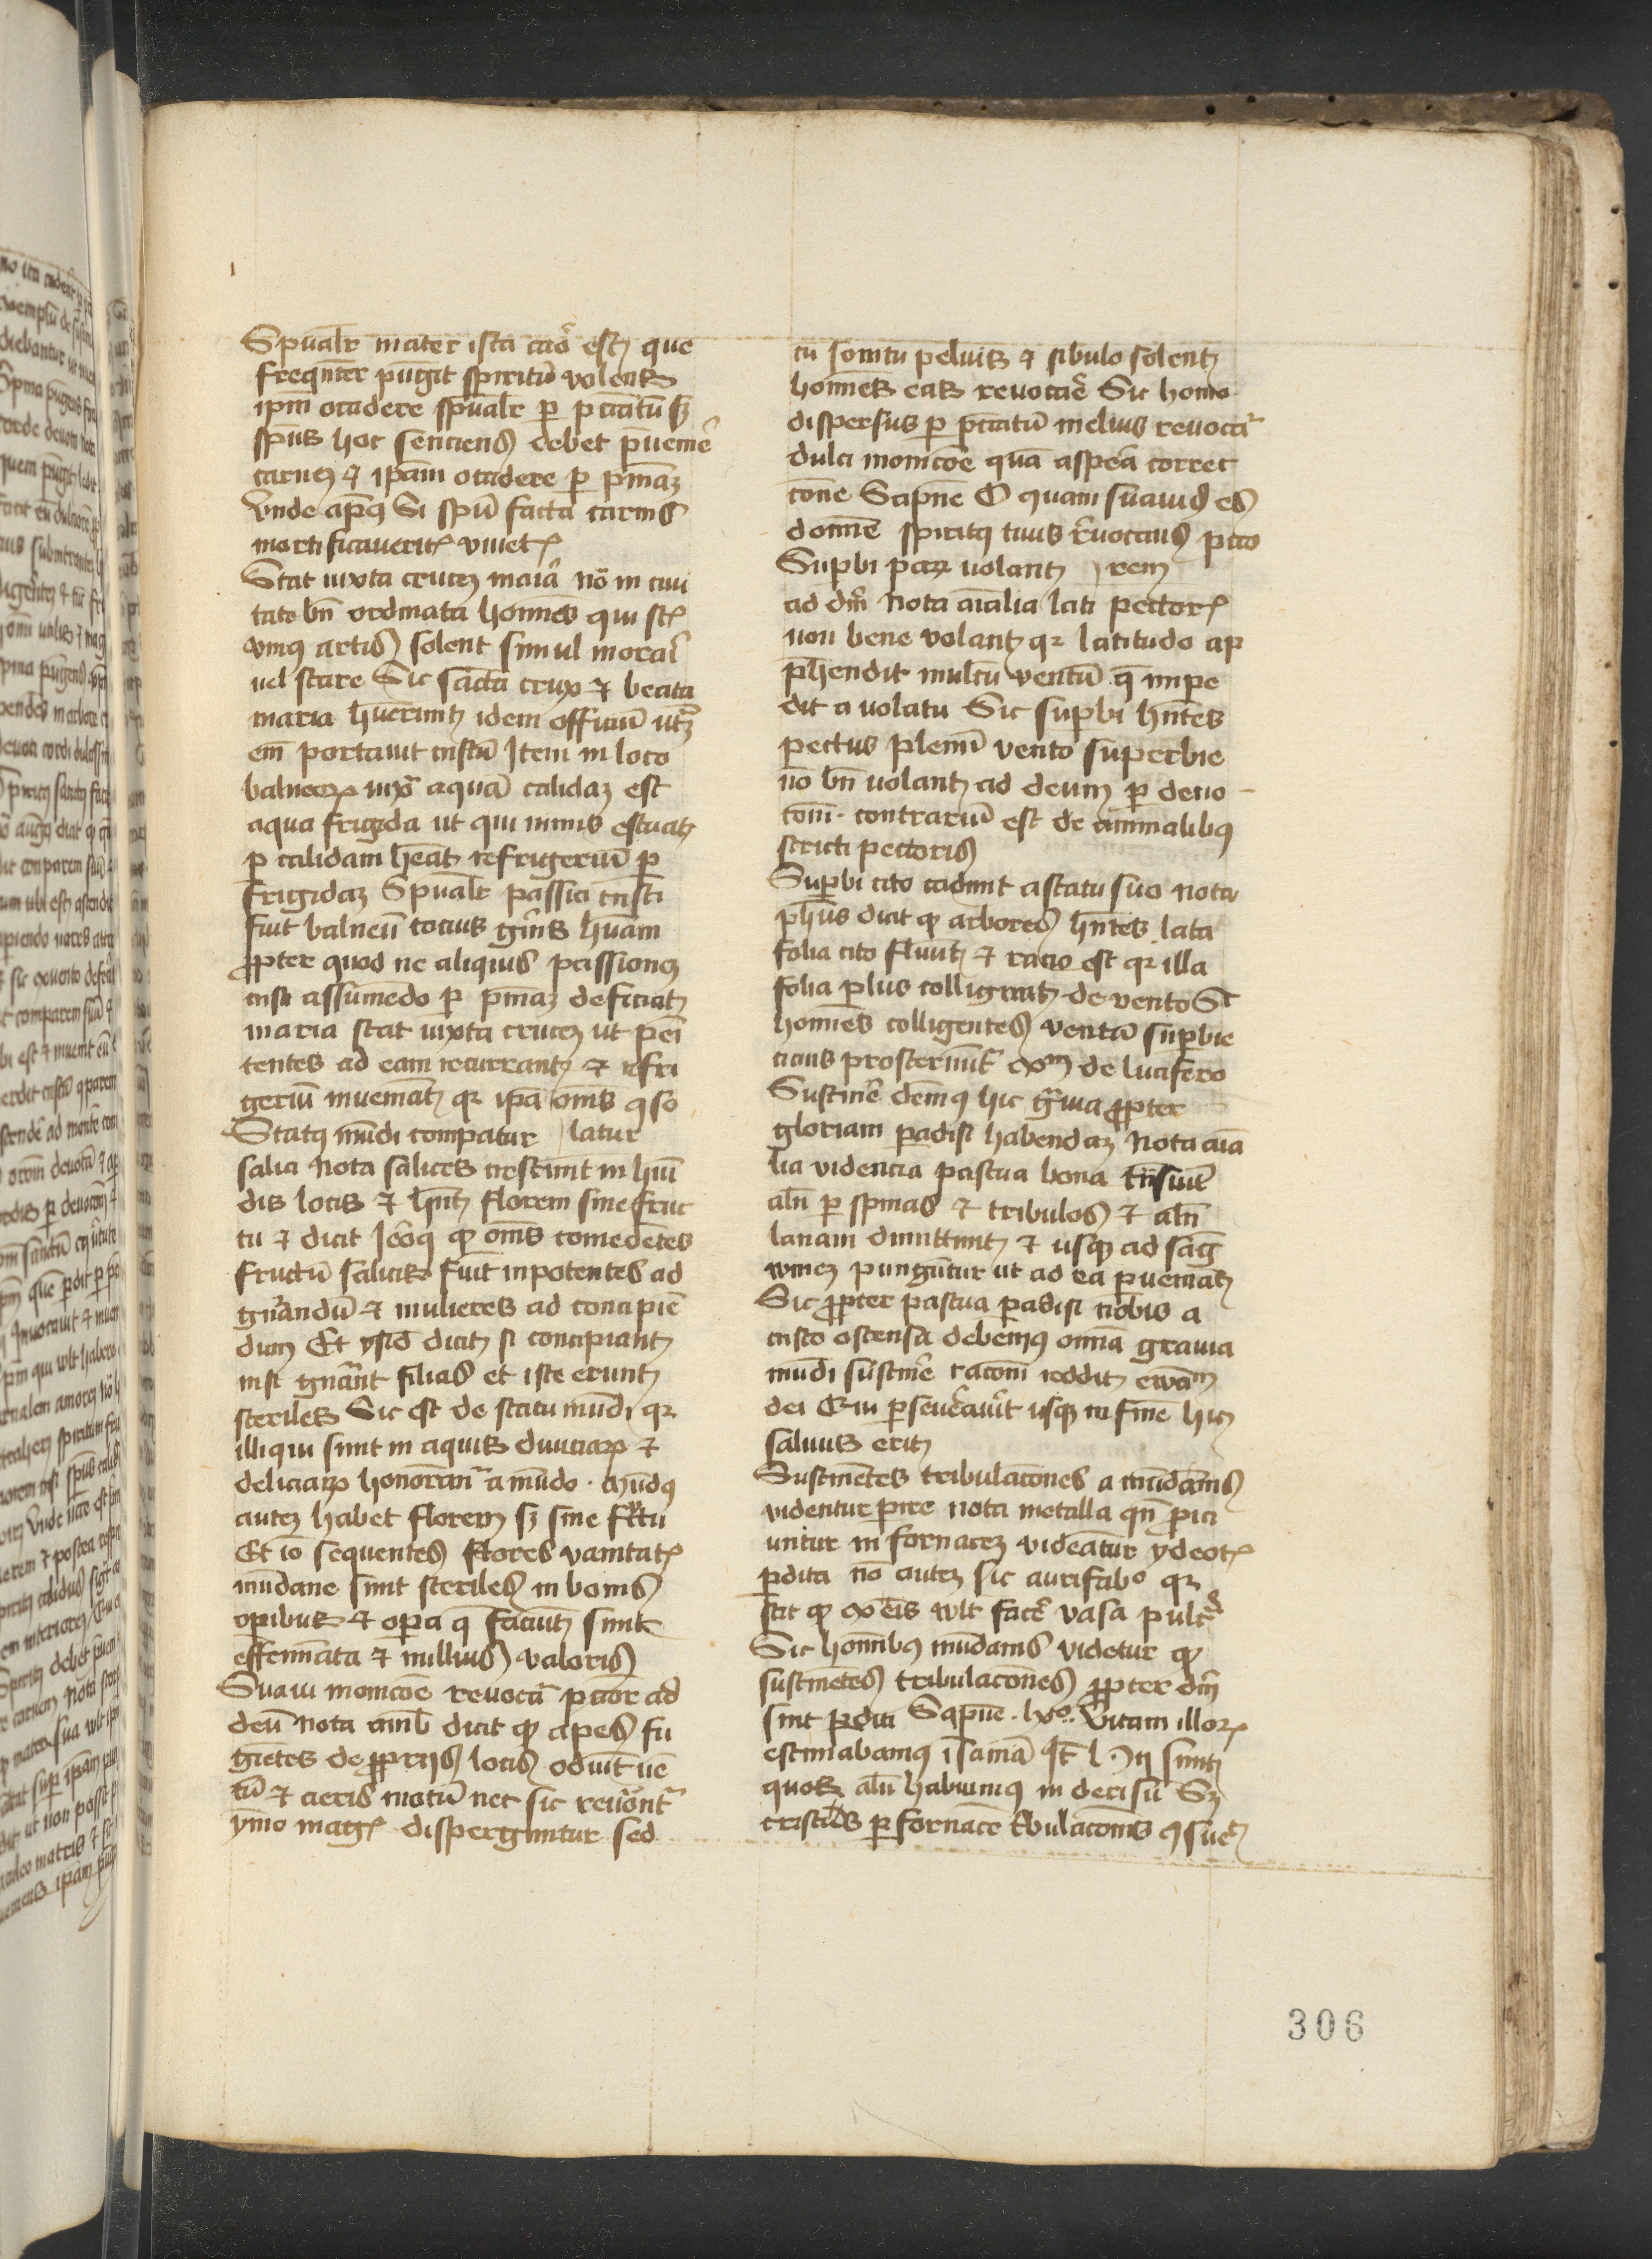 Spūalr̄ mater ista caō est que
freqn̄ter pūgit spiritū volens
ipm̄ occidere spūalr̄ ꝑ pctātū sꝫ
spūs hoc senciens debet p̄uenire
carnem et ipam̄ occidere ꝑ pn̄iaꝫ
Vnde apꝰ Si spū facta carnis
mortificaueritis viuetis
Stat iuxta crucem maīa nō in ciui
tate bn̄ ordinata homīes qui sūt
vniꝰ artis solent simul morari
uel stare Sic sācta crux et beata
maria hūerunt idem officiū utraqꝫ
em̄ portauit cristū Item in loco
balneoꝝ iuxta aquā calidaꝫ est
aqua frigida ut qui nimis estuat
ꝑ calidam heāt refrigeriū ꝑ
frigidaꝫ Spūalr̄ passio cristi
fuit balneū tocius gn̄is hūani
ꝓpter quod ne aliquis passionem
cristi assumēdo ꝑ pn̄iaꝫ deficiat
maria stat iuxta crucem ut peni
tentes ad eam recurrant et refri
geriū inueniāt qꝛ ipā om̄s ꝯso
Statꝰ mūdi comparatur latur
salici Nota salices crescunt in humi
dis locis et hn̄t florem sine fruc
tu et dicit ꝙ om̄s comedētes
fructū salicis fiūt inpotentes ad
gn̄andū et mulieres ad concipiē
dum Et ysid̄ dicit si concipiant
nisi gn̄ant filias et iste erunt
steriles Sic est de statu mūdi qꝛ
illi qui sunt in aquis diuiciaꝝ et
deliciaꝝ honorant̄ a mūdo . mūdꝰ
autem habet florem sꝫ sine fructu
Et iō sequentes flores vanitatis
mūdane sunt steriles in bonis
oꝑibus et opa q̄ faciūt sunt
effemīata et nullius valoris
Suaui monicōe reuocat̄ pccōr ad
deū Nota amb̄ dicit ꝙ apes fu
giētes de ꝓprijs locis odiūt uē
tū et aeris motū nec sic reuocant̄
ymo magis disperguntur sed
cū sonitu peluis et sibulo solent
homīes eas reuocare Sic homo
dispersus ꝑ pctātū melius reuocat̄
dulci monicōe quā aspera correc
cōne Sapīe O quam suauis es
domīe spiritꝰ tuus reuocans pcco
Supbi parum uolant rem
ad dm̄ Nota aīalia lati pectoris
non bene volant qꝛ latitudo ap
p̄hendit multū ventū q̄ impe
dit a volatu Sic supbi hn̄tes
pectus plenū vento superbie
nō bn̄ uolant ad deum ꝑ deuo
cōni . contrariū est de animalibꝰ
stricti pectoris
Supbi cito cadunt a statu suo Nota
ph̄us dicit ꝙ arbores hn̄tes lata
folia cito fluūt et racio est qꝛ illa
folia plus colligunt de vento Sic
homīes colligentes ventū supbie
cicius prosternunt̄ exm de lucifero
Sustinere debemꝰ hic grauia ꝓpter
gloriam paradisi habendaꝫ Nota aīa
lia videncia pascua bona trāsiūt
aliqn̄ ꝑ spinas et tribulos et aliqn̄
lanam dimittunt et usqꝫ ad sang
winem pungūtur ut ad ea ꝑueniāt
Sic ꝓpter pascua paradisi nobis a
cristo ostensa debemꝰ omīa grauia
mūdi sustinere racōni reddit ewam
dei Qui ꝑseuerauerit usqꝫ in finē hic
saluus erit
Sustinētes tribulacōnes a mūdanis
videntur ꝑire Nota metalla qn̄ proici
untur in fornacem videātur ydeotis
ꝑdita nō autem sic aurifabo qꝛ
scit ꝙ ex eis vlt facere vasa pulcra
Sic homībꝰ mūdanis videtur ꝙ
sustinētes tribulacōnes ꝓpter dm̄
sint ꝑditi Sapīe . Vitam illoꝝ
estimabamꝰ īsaniā Hii sunt
quos aliqn̄ habuimꝰ in derisū Sꝫ
cristus ꝑ fornacē tribulacōnis
306